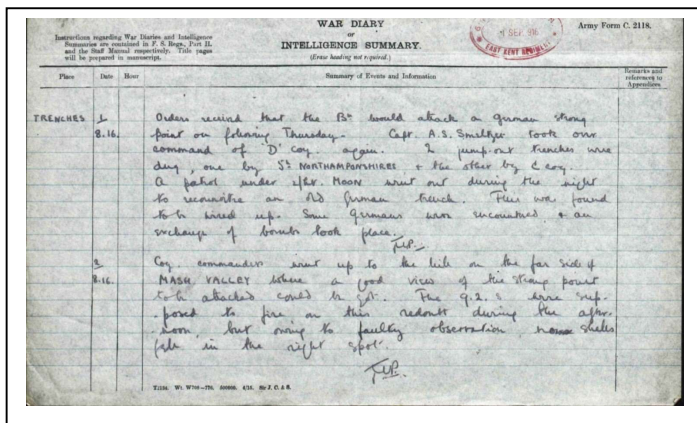 WAR DIARY
or
INTELLIGENCE SUMMARY.
(Erase heading not required.)
Army Form C. 2118.
Instructions regarding War Diaries and Intelligence
Summaries are contained in F. S. Regs., Part II.
and the Staff Manual respectively. Title pages
will be prepared in manuscript.
SEP. 1916
EAST KENT REGIMENT
Place Date Hour Summary of Events and Information Remarks and references to Appendices
TRENCHES 1/8.16. Orders received that the Bn would attack a german strong
point on following Thursday. Capt. A.S. Smeltzer took over
command of 'D' Coy. again. 2 jump-out trenches were
dug, one by 5th NORTHAMPONSHIRES & the other by C coy.
A patrol under 2/Lt. MOON went out during the night
to reconnoitre an old German trench. This was found
to be wired up. Some germans were encountered & an
exchange of bombs took place.
2/8.16. Coy. commanders went up to the hill on the far side of
MASH VALLEY where a good view of the strong point
to be attacked could be got. The 9.2.s were sup-
-posed to fire on this redoubt during the after-
-noon but owing to faulty observation shells
fell in the right spot.